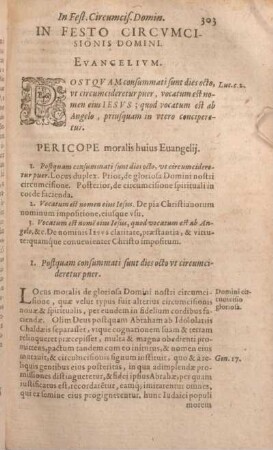 In Fest. Circumcis. Domin. 303
IN FESTO CIRCVMCI-
SIONIS DOMINI.
EVANGELIVM.
POSTQVAM consummati sunt dies octo, Luc. c. 2.
vt circumcideretur puer, vocatum est no-
men eius IESVS; quod vocatum est ab
Angelo, priusquam in vtero concipere-
tur.
PERICOPE moralis huius Euangelij.
1. Postquam consummati sunt dies octo, vt circumcidere
tur puer. Locus duplex. Prior, de gloriosa Domini nostri
circumcisione. Posterior, de circumcisione spirituali in
corde facienda.
2. Vocatum est nomen eius Iesus. De pia Christianorum
nominum impositione, eiusque vsu.
3. Vocatum est nomē eius Iesus, quod vocatum est ab Ange-
lo, &c. De nominis IESV claritate, præstantia, & virtu-
te quamque conuenienter Christo impostrum.
1. Postquam consummati sunt dies octo vt circumci-
deretur puer.
LOcus moralis de gloriosa Domini nostri circumci- Domini cir-
sione, quæ velut typus fuit alterius circumcisionis cumcisio
nouæ & spiritualis, per fidem in baptismo suscipi- gloriosa.
endæ. Olim Deus postquam Abraham ab Idololatris
Chaldæis separasset, visque cognationem suam & terram
relinquere præcepisset, multa & magna obedienti pro-
mittens, pactum tandem cum eo inituit, & nomen eius &
circumcisionis signum instituit, quo & à re- Gen. 17.
liquis gentibus eius posteri, in quo adimplendæ pro-
missiones distinguerentur, & fidei ipsius Abrahæ per quam
iustificatus est, recordarētur, eamq́; imitarentur omnes,
qui ex semine eius progignerentur. Hunc Iudaici populi
morem